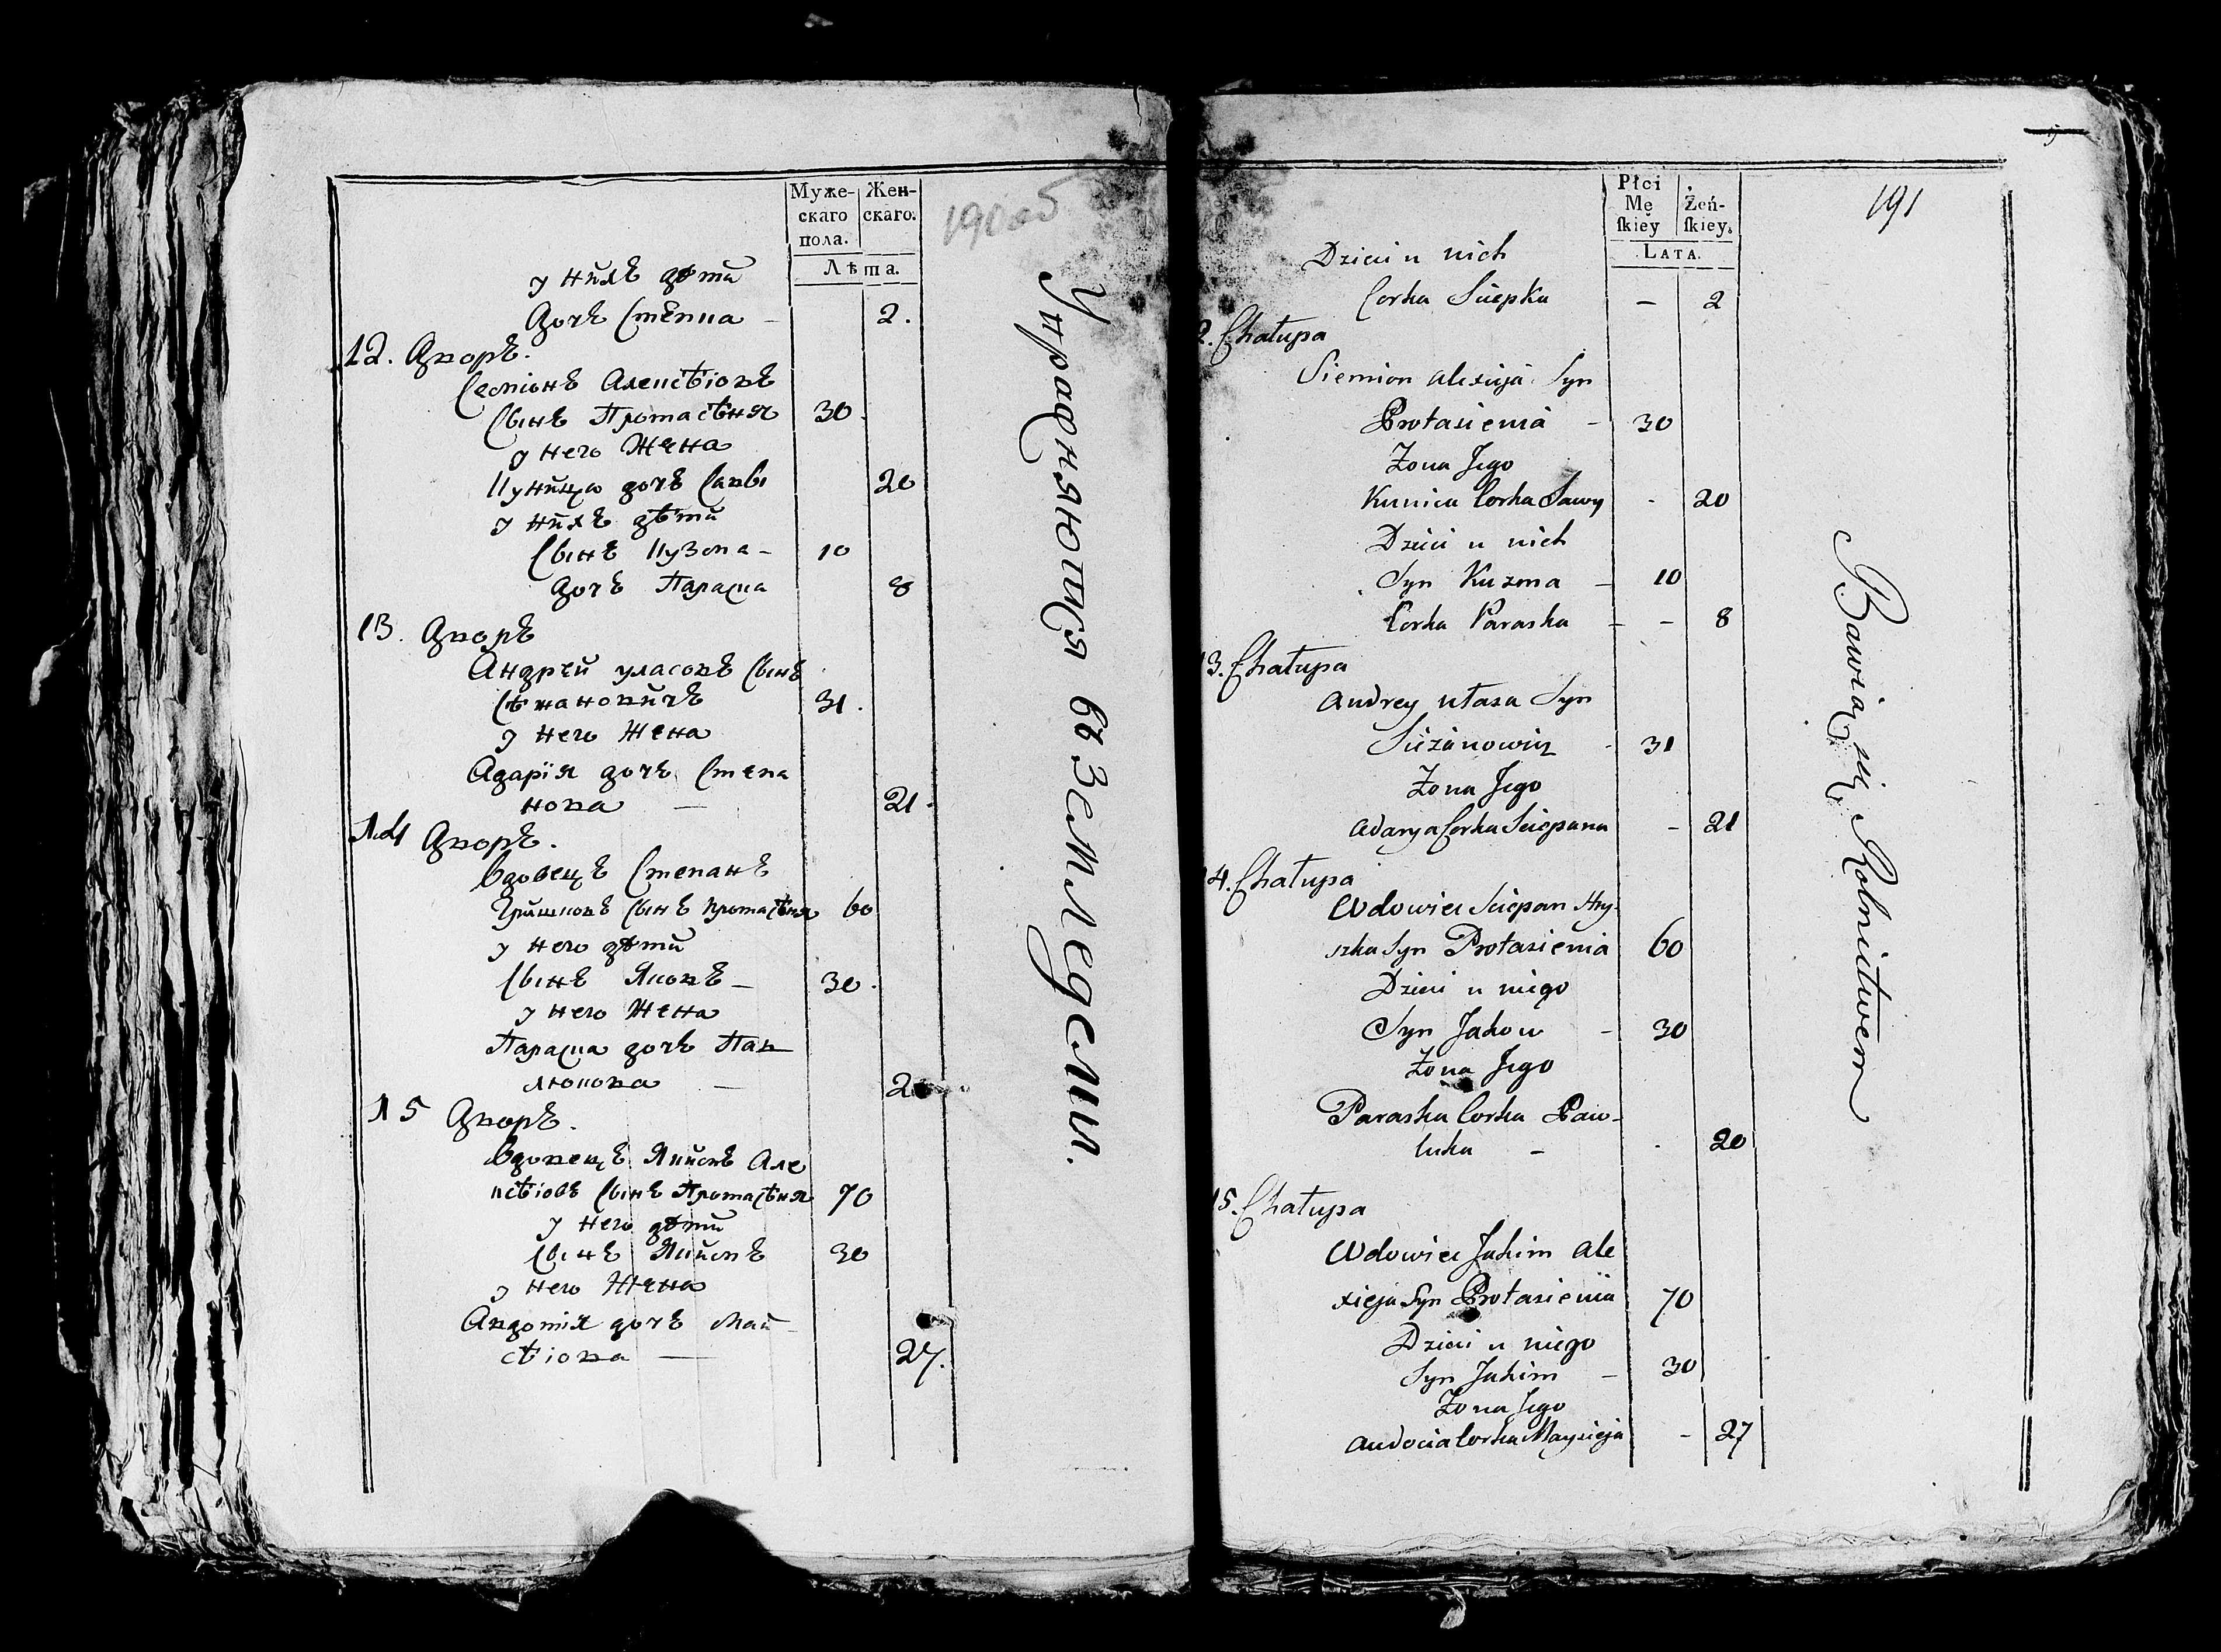 Муже-
скаго
пола.
Жен-
скаго.
Лѣта.
190об
у нихъ дѣти
дочъ Стѣпка – 2.
12. Дворъ.
Семіонъ Алексѣіовъ
Сынъ Протасѣня 30
у него Жена
Куница дочъ Савы 20
у нихъ дѣти
Сынъ Кузма – 10
дочъ Параска 8
13. Дворъ
Андрей уласовъ Сынъ
Сѣжановичъ 31.
у него Жена
Адарія дочъ Степа
нова — 21.
14 Дворъ.
Вдовецъ Степанъ
Гришковъ Сынъ Протасѣня 60
у него дѣти
Сынъ Яковъ – 30.
у него Жена
Параска дочъ Пав
люкова — 20
15 Дворъ.
Вдовецъ Якимъ Але
ксѣіовъ Сынъ Протасѣня 70
у него дѣти
Сынъ Якимъ 30
у него Жена
Авдотія дочъ Май
сѣіова — 27.
Упражняютця въ Земледелии.
Płci
Mę
ſkiey
Żeń-
ſkiey.
LATA.
191
Dzieci u nich
Corka Sciepka – 2
2. Chałupa
Siemion Alexieja Syn
Protasienia – 30
Żona Jego
Kunica Corka Sawy - 20
Dzieci u nich
Syn Kuzma – 10
Corka Paraska – – 8
13. Chałupa
Andrey Ułasa Syn
Sieżanowicz - 31
Żona Jego
Adarya Corka Sciepana – 21
14. Chałupa
Wdowiec Sciepan Hry-
szka Syn Protasienia 60
Dzieci u niego
Syn Jakow – 30
Żona Jego
Paraska Corka Paw-
luka – - 20
15. Chałupa
Wdowiec Jakim Ale
xieja Syn Protasienia 70
Dzieci u niego
Syn Jakim – 30
Żona Jego
Audocia Corka Maysieja – 27
Bawią się Rolnictwem